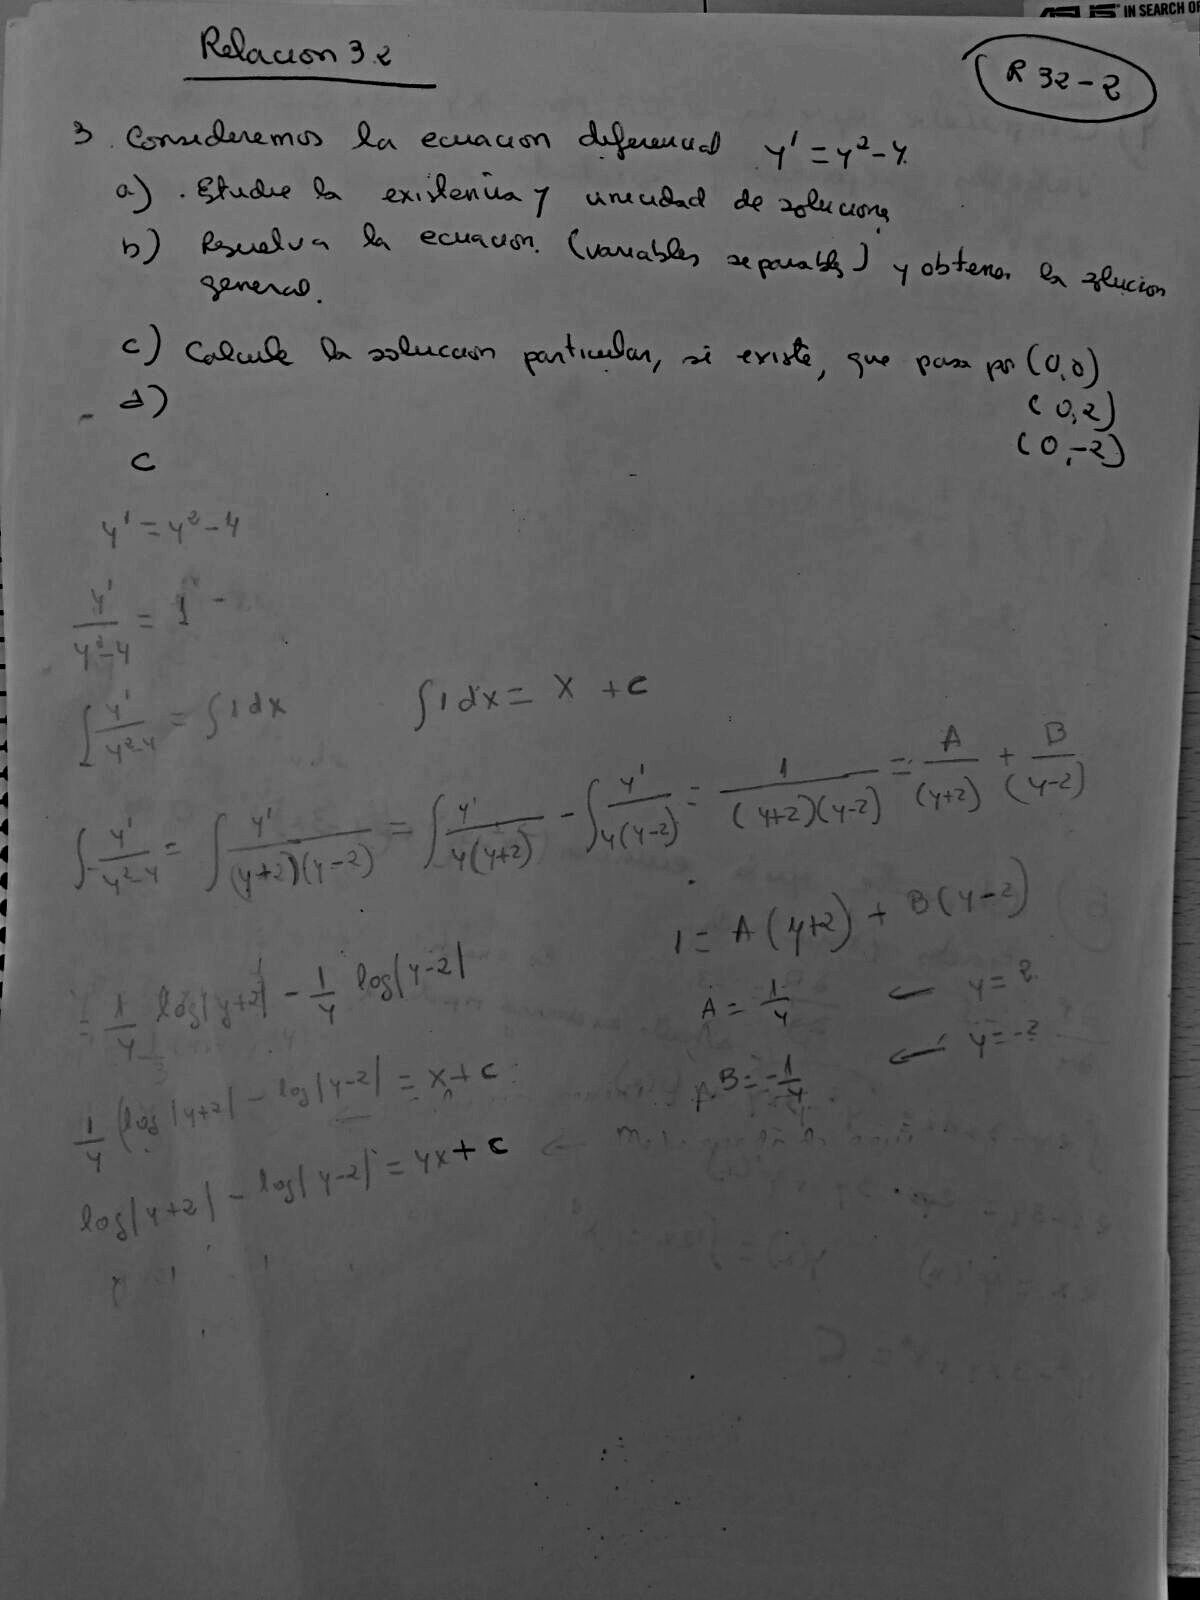 ASUS IN SEARCH OF
Relacion 3.2
R 32-2
3. Consideremos la ecuacion diferencial y' = y² - 4.
a) Estudie la existencia y unicidad de soluciones
b) Resuelva la ecuacion (variables separables) y obtener la solucion
general.
c) Calcule la solucion particular, si existe, que pasa por (0,0)
d) (0,2)
c (0,-2)
y' = y² - 4
y'/(y²-4) = 1
∫ y'/(y²-4) = ∫ 1 dx ∫ 1 dx = x + c
∫ y'/(y²-4) = ∫ y'/((y+2)(y-2)) = ∫ y'/(4(y+2)) - ∫ y'/(4(y-2)) = 1/((y+2)(y-2)) = A/(y+2) + B/(y-2)
1 = A(y+2) + B(y-2)
= 1/4 log|y+2| - 1/4 log|y-2|
A = 1/4 ← y = 2
B = -1/4 ← y = -2
1/4 (log|y+2| - log|y-2| = x + c
log|y+2| - log|y-2| = 4x + c ←